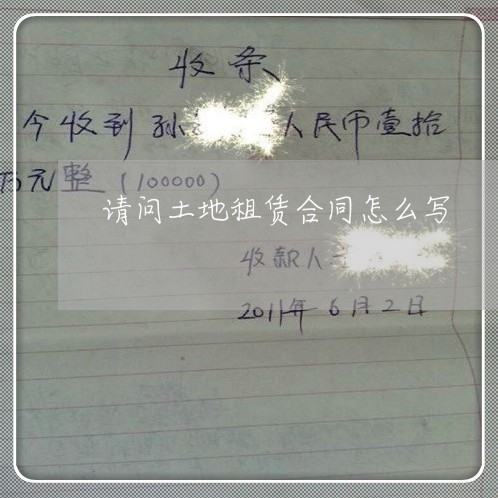 收条
今收到孙 人民币壹拾
万元整(100000)
请问土地租赁合同怎么写
收款人
2011年6月2日